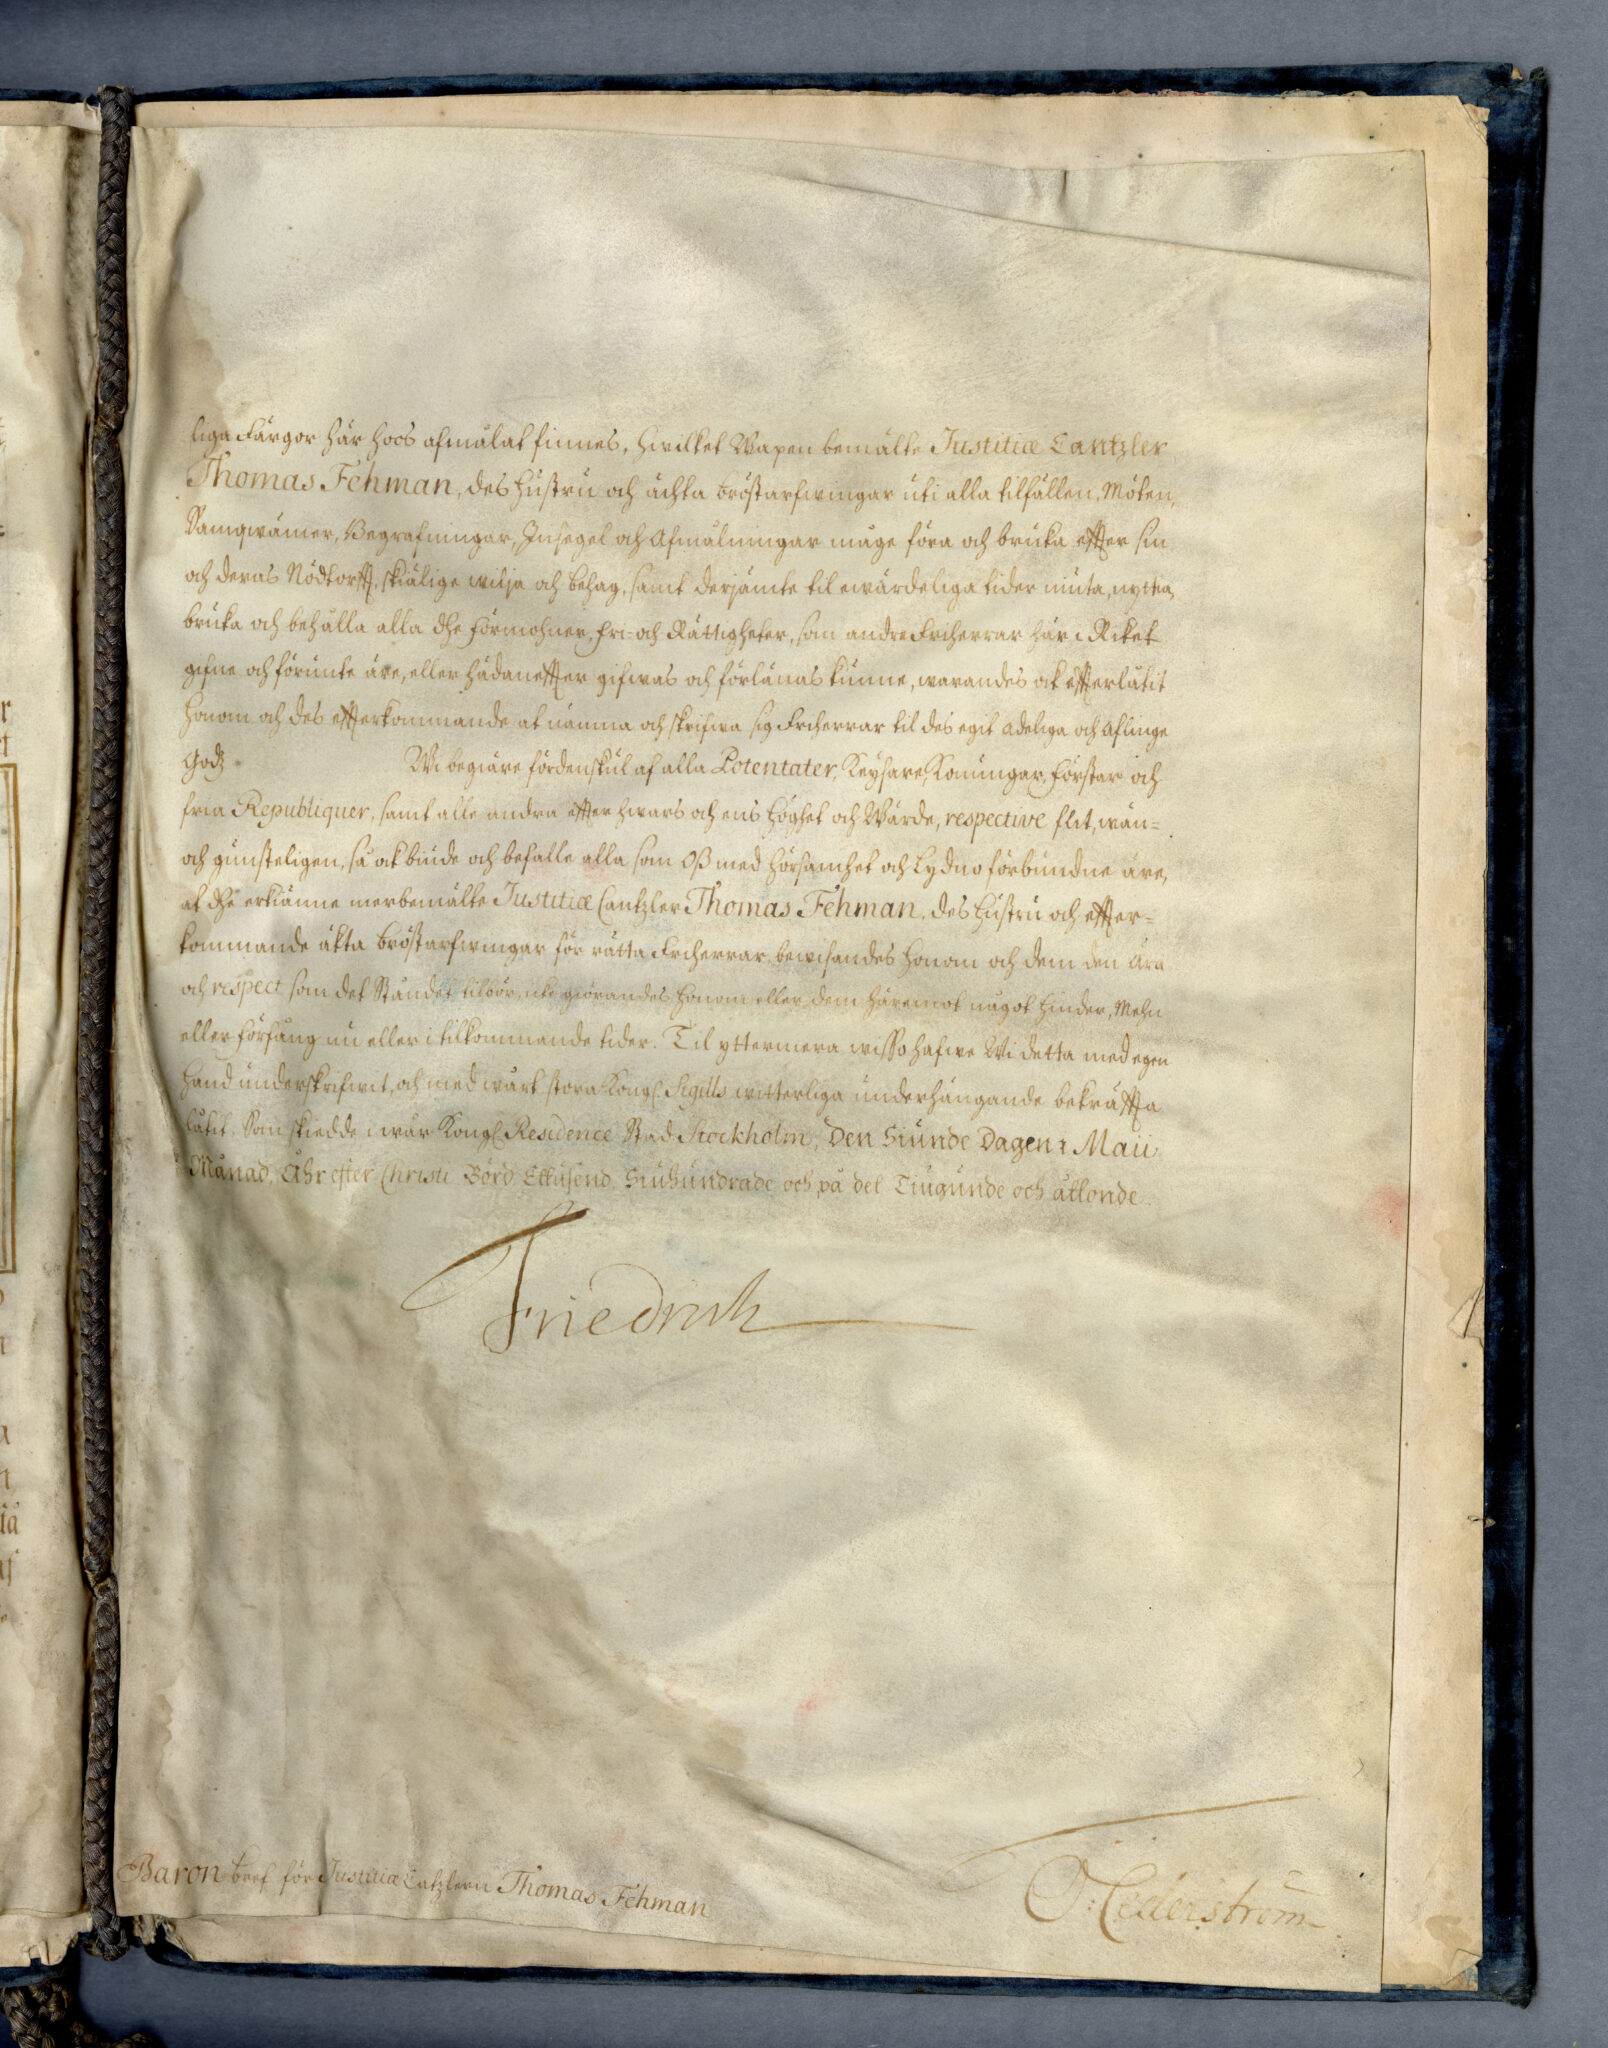 liga Färgor här hoos afmålat finnes, hwilket Wapen bemälte Justitiæ Cantzler
Thomas Fehman, des hustru och ächta bröstarfwingar uti alla tilfällen, Möten,
Samqwämer, Begrafningar, Insegel och Afmålningar måge föra och bruka effter sin
och deras Nödtorfft, skiälige wilja och behag, samt derjämte til ewärdeliga tider niuta, nyttia,
bruka och behålla alla dhe förmohner, fri- och Rättigheter, som andre Friherrar här i Riket
gifne och förunte äre, eller hädaneffter gifwas och förlänas kunne, warandes ock effterlåtit
honom och des effterkommande at nämna och skrifwa sig Friherrar til des egit adeliga och Aflinge
Godz. Wi begiäre fördenskul af alla Potentater, Keysare, Konungar, Förstar och
fria Republiquer, samt alle andra effter hwars och ens höghet och Wärde, respective flit, wän-
och gunsteligen, så ock biude och befalle alla som Oß med hörsamhet och Lydno förbundne äre,
at dhe erkiänne merbemälte Justitiæ Cantzler Thomas Fehman, des hustru och effter-
kommande äkta bröstarfwingar för rätta Friherrar, bewisandes honom och dem den ära
och respect som det Ståndet tilbör, icke giörandes honom eller dem häremot något hinder, Mehn
eller förfång nu eller i tilkommande tider. Til yttermera wisso hafwe Wi detta med egen
hand underskrifwit, och med wårt stora Kongl. Sigills witterliga underhängande bekräffta
låtit. Som skiedde i wår Kongl. Residence Stad Stockholm, Den Siunde Dagen i Maii
Månad, Åhr efter Christi Börd Ettusend Siuhundrade och på det Tiugunde och åttonde.
Friedrich
Baron bref för Justitiæ Catzleren Thomas Fehman
O: Cederström